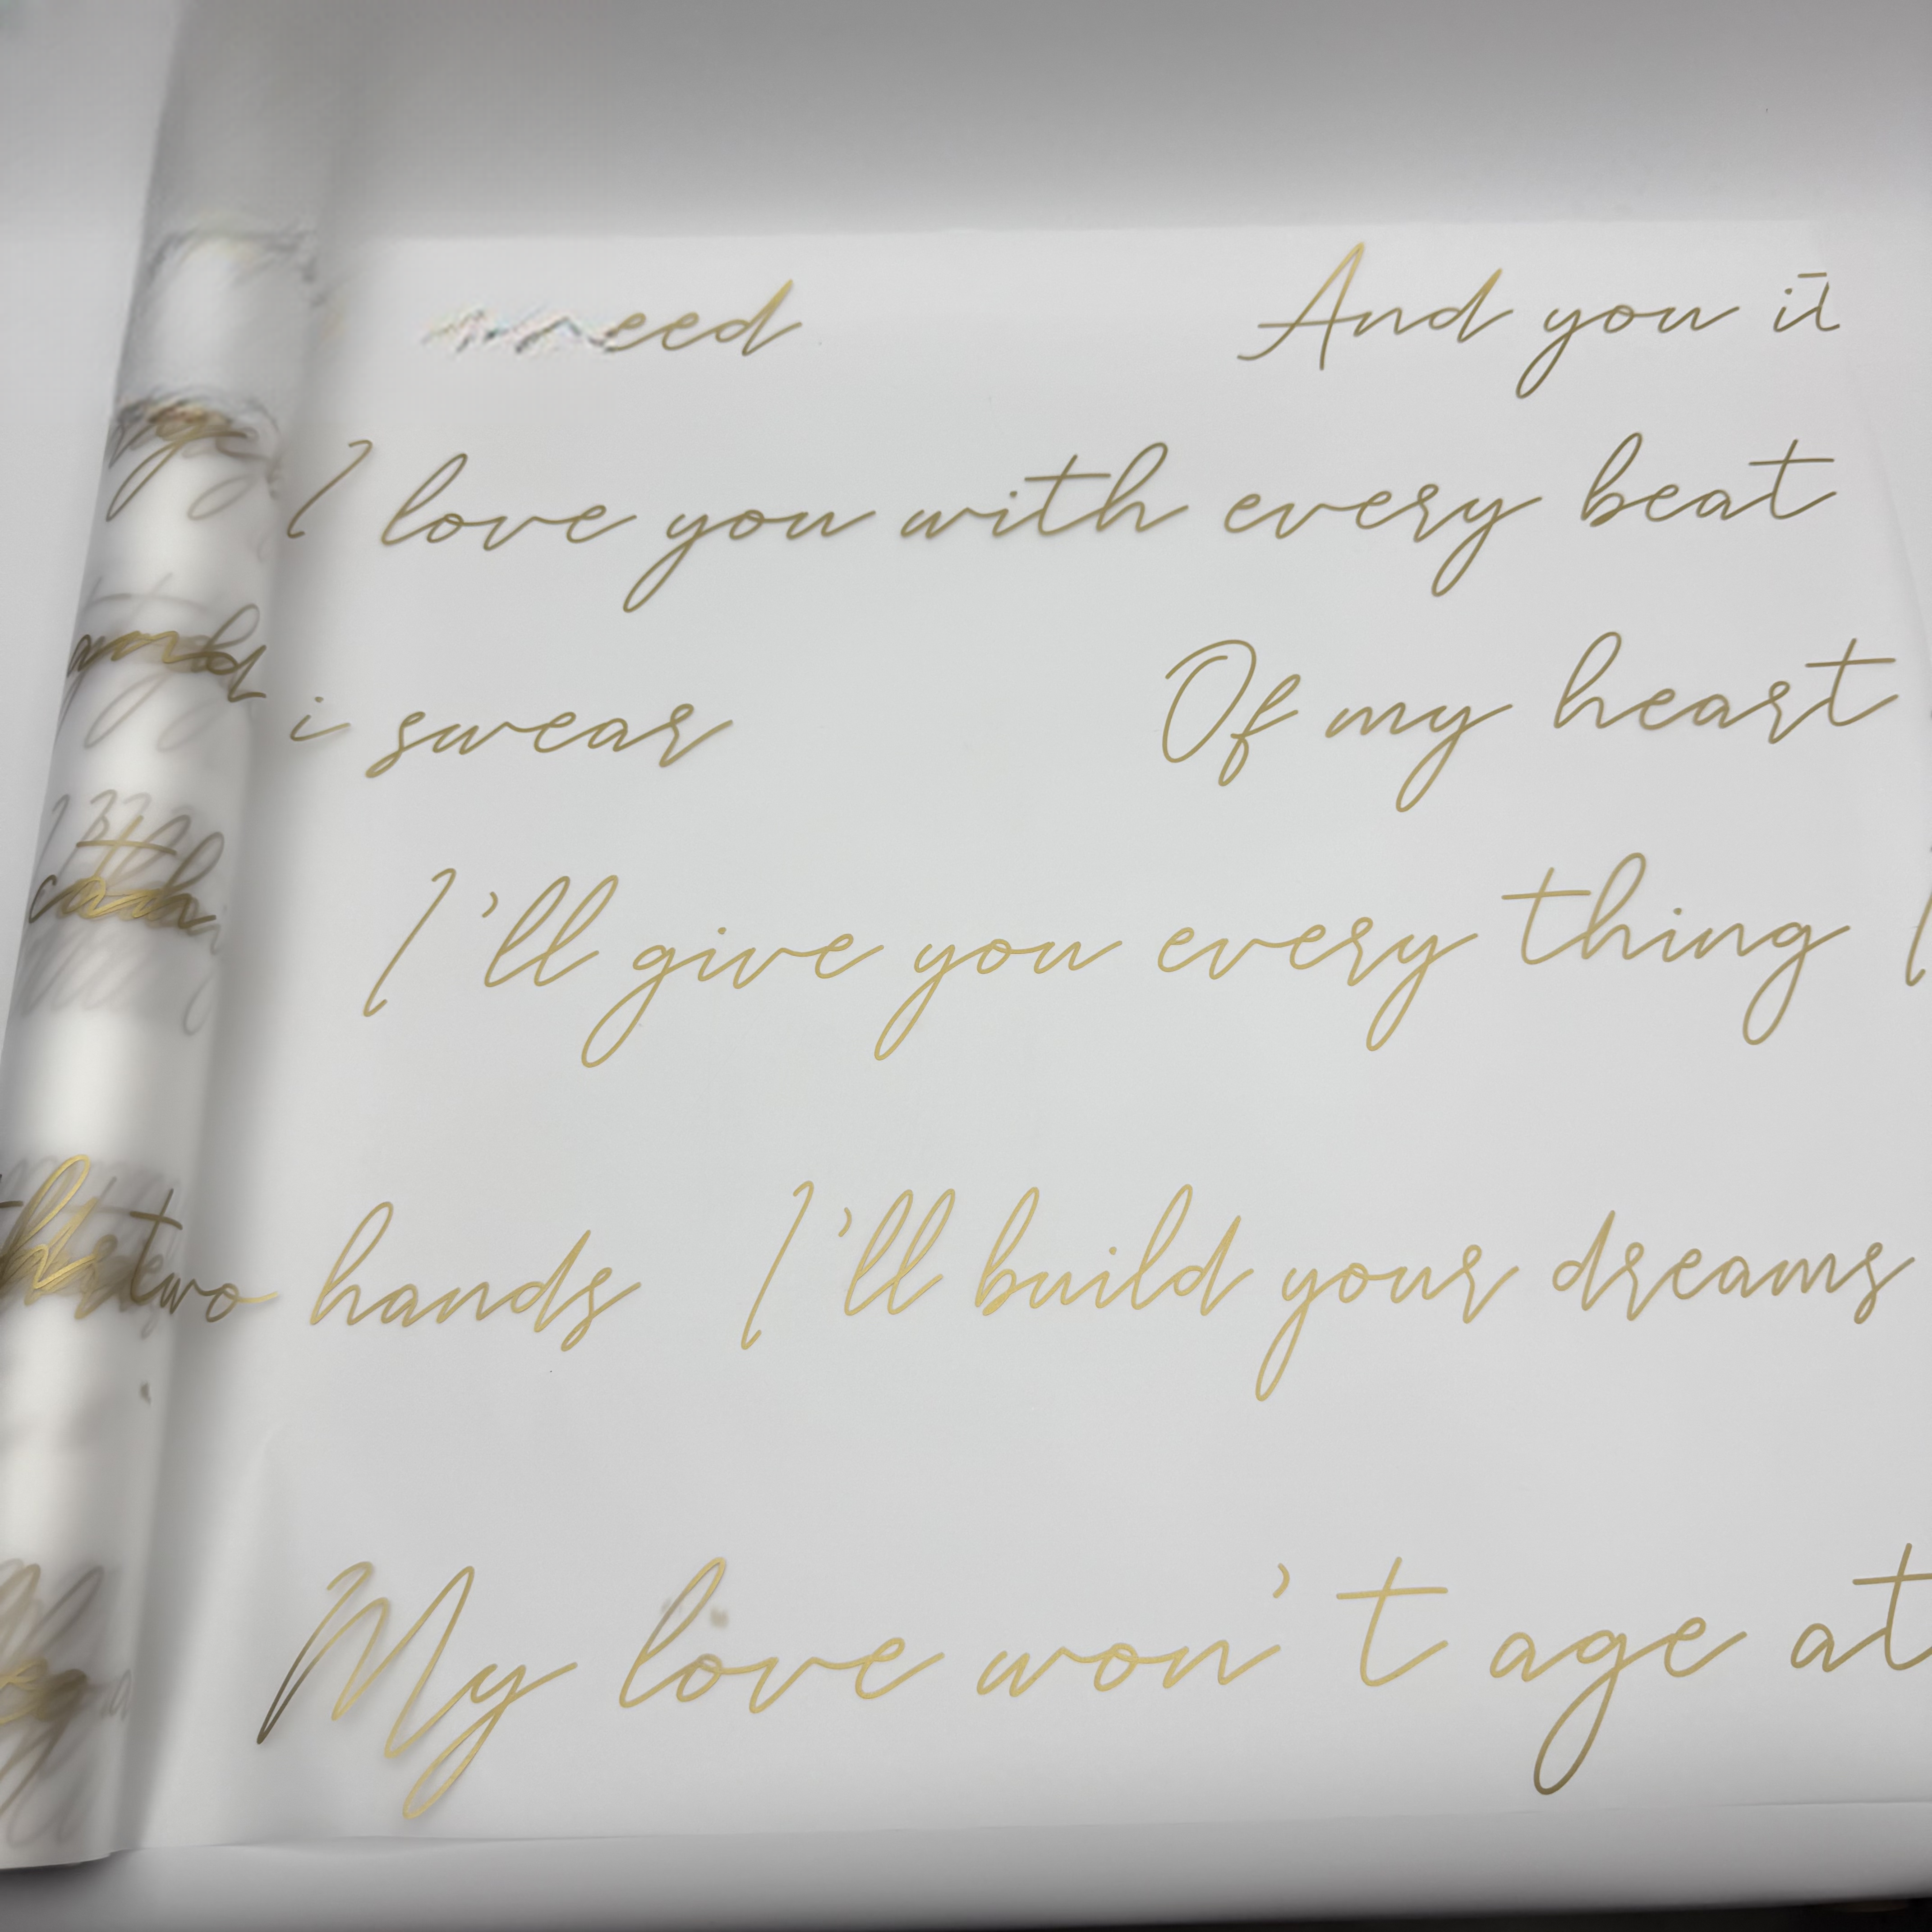 need And you
I love you with every beat
and i swear Of my heart
I'll give you every thing I
two hands I'll build your dreams
My love won't age at